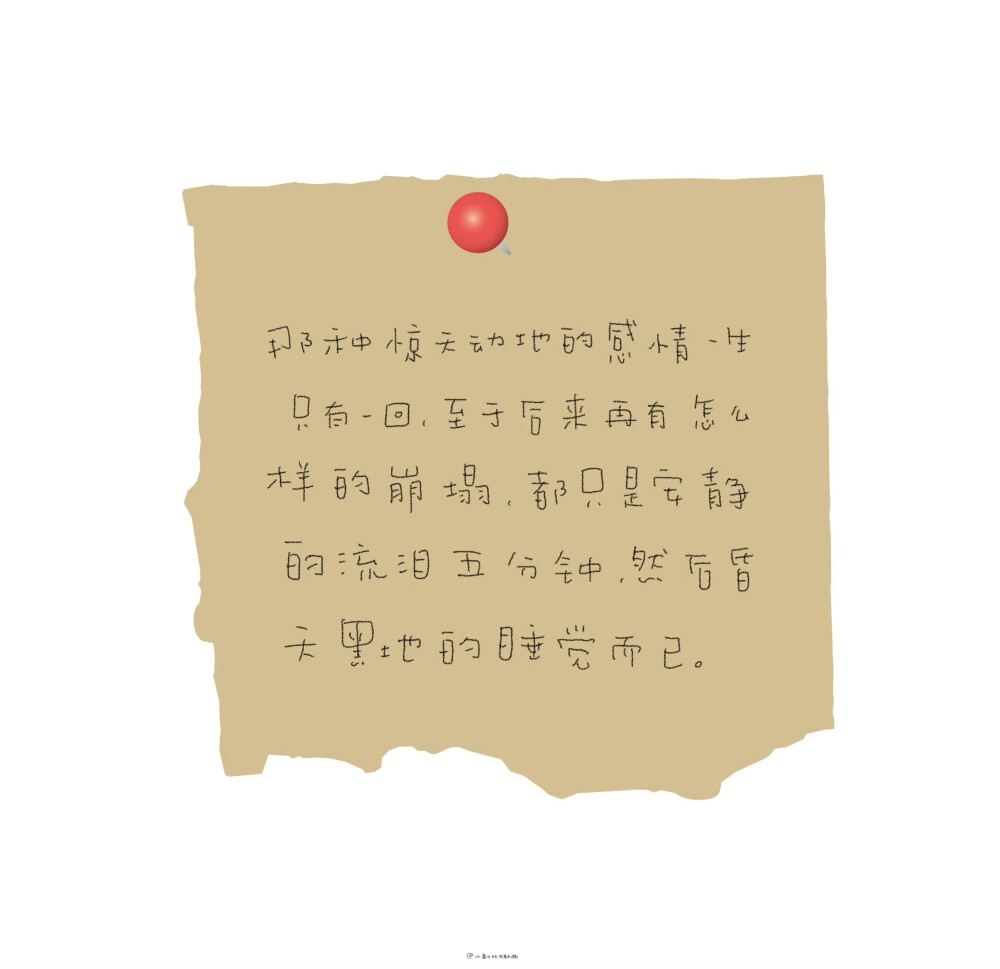 那种惊天动地的感情一生
只有一回，至于后来再有怎么
样的崩塌，都只是安静
的流泪五分钟，然后昏
天黑地的睡觉而已。